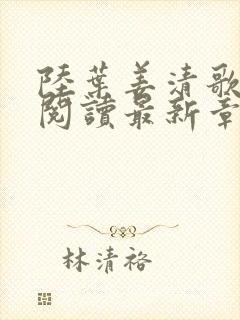 陸葉姜清歌
閱讀最新章
林清裕